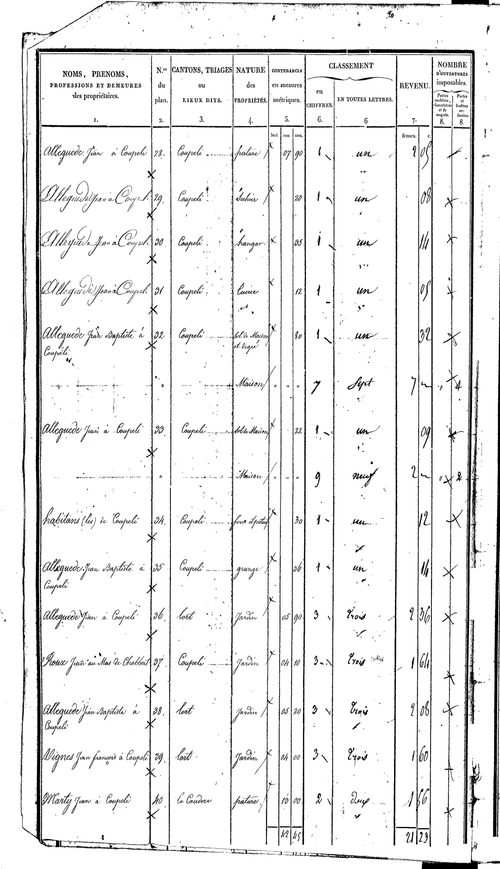 NOMS, PRENOMS, PROFESSIONS ET DEMEURES des propriétaires. | N.os du plan. | CANTONS, TRIAGES OU LIEUX DITS. | NATURE des PROPRIÉTÉS. | CONTENANCES en mesures métriques. | CLASSEMENT en CHIFFRES. | EN TOUTES LETTRES. | REVENU. | NOMBRE D'OUVERTURES imposables.
1. 2. 3. 4. 5. 6. 6 7. 8. 8.
francs. c.
Alleguede Jean à Coupeli 28. Coupeli pature 07 90 1 un 2 05
Alleguede Jean à Coupeli 29. Coupeli 20 1 un 08
Alleguede Jean à Coupeli 30 Coupeli hangar 35 1 un 14
Alleguede Jean à Coupeli 31 Coupeli 12 1 un 05
Alleguede Jean Baptiste à Coupeli 32 Coupeli sol de Maison et 80 1 un 32
Maison 7 Sept 7 4
Alleguede Jean à Coupeli 33 Coupeli sol de Maison 22 1 un 09
Maison 9 neuf 2 2
habitans (les) de Coupeli 34 Coupeli 30 1 un 12
Alleguede Jean Baptiste à Coupeli 35 Coupeli grange 36 1 un 14
Alleguede Jean à Coupeli 36 lort Jardin 05 90 3 Trois 2 36
Roux Jean au Mas de Chabbert 37 Coupeli Jardin 04 10 3 Trois 1 64
Alleguede Jean Baptiste à Coupeli 38 lort Jardin 05 20 3 Trois 2 08
Vignes Jean françois à Coupeli 39 lort Jardin 04 00 3 Trois 1 60
Marty Jean à Coupeli 40 la Coudere pature 10 00 2 deux 1 56
42 45 21 23